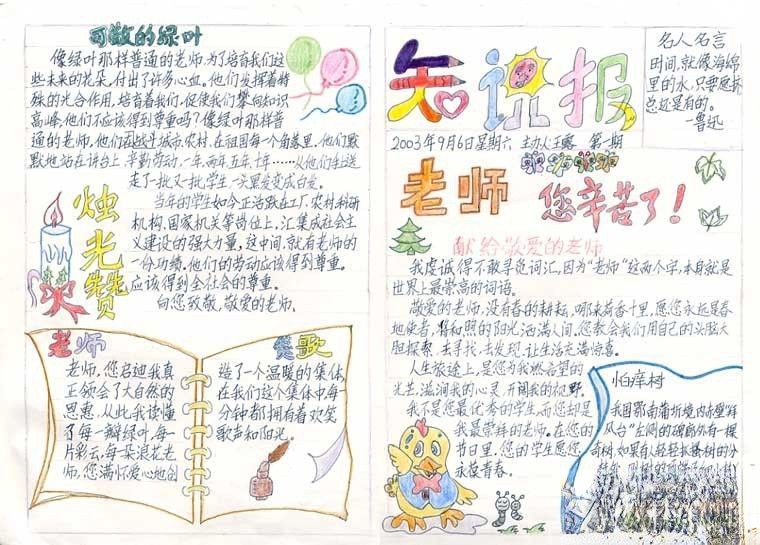 可敬的绿叶
像绿叶那样普通的老师,为了培育我们这
些未来的花朵,付出了许多心血。他们发挥着特
殊的光合作用,培育着我们,促使我们攀向知识
高峰,他们不应该得到尊重吗?像绿叶那样普
通的老师,他们
城市、农村,在祖国每一个角落里。他们默
默地站在讲台上,辛勤劳动,一年两年五年十年……从他们手上送
走了一批又一批学生,一头黑发变成白发。
烛光赞
当年的学生如今正活跃在工厂、农村、科研
机构、国家机关等岗位上,汇集成社会主
义建设的强大力量,这中间,就有老师的
一份功绩。他们的劳动应该得到尊重。
应该得到全社会的尊重。
向您致敬,敬爱的老师。
老师
老师,您启迪我真
正领会了大自然的
恩惠,从此,我读懂
了每一瓣绿叶,每一
片彩云,每朵浪花老
师,您满怀爱心地创
赞歌
造了一个温暖的集体,
在我们这个集体中每一
分钟都拥有着欢笑
歌声和阳光。
知识报
2003年9月6日星期六 主办人:王露 第一期
名人名言
时间,就像海绵
里的水,只要愿挤,
总还是有的。
—鲁迅
老师 您辛苦了!
献给敬爱的老师
我虔诚得不敢寻觅词汇,因为“老师”这两个字,本身就是
世界上最崇高的词语。
敬爱的老师,没有春的耕耘,哪来荷香十里,愿您永远是春
地使者,将和照的阳光洒满人间。您教会我们用自己的头脑大
胆探索,去寻找,去发现,让生活充满惊喜。
人生旅途上,是您为我燃希望的
光芒,滋润我的心灵,开阔我的视野。
我不是您最优秀的学生,而您却是
我最崇拜的老师。在您的
节日里,您的学生愿您
永葆青春。
怕痒树
我国鄂南蒲圻境内赤壁“拜
风台”左侧的碑廊外有一棵
奇树,如果有人轻轻抓搔树的分